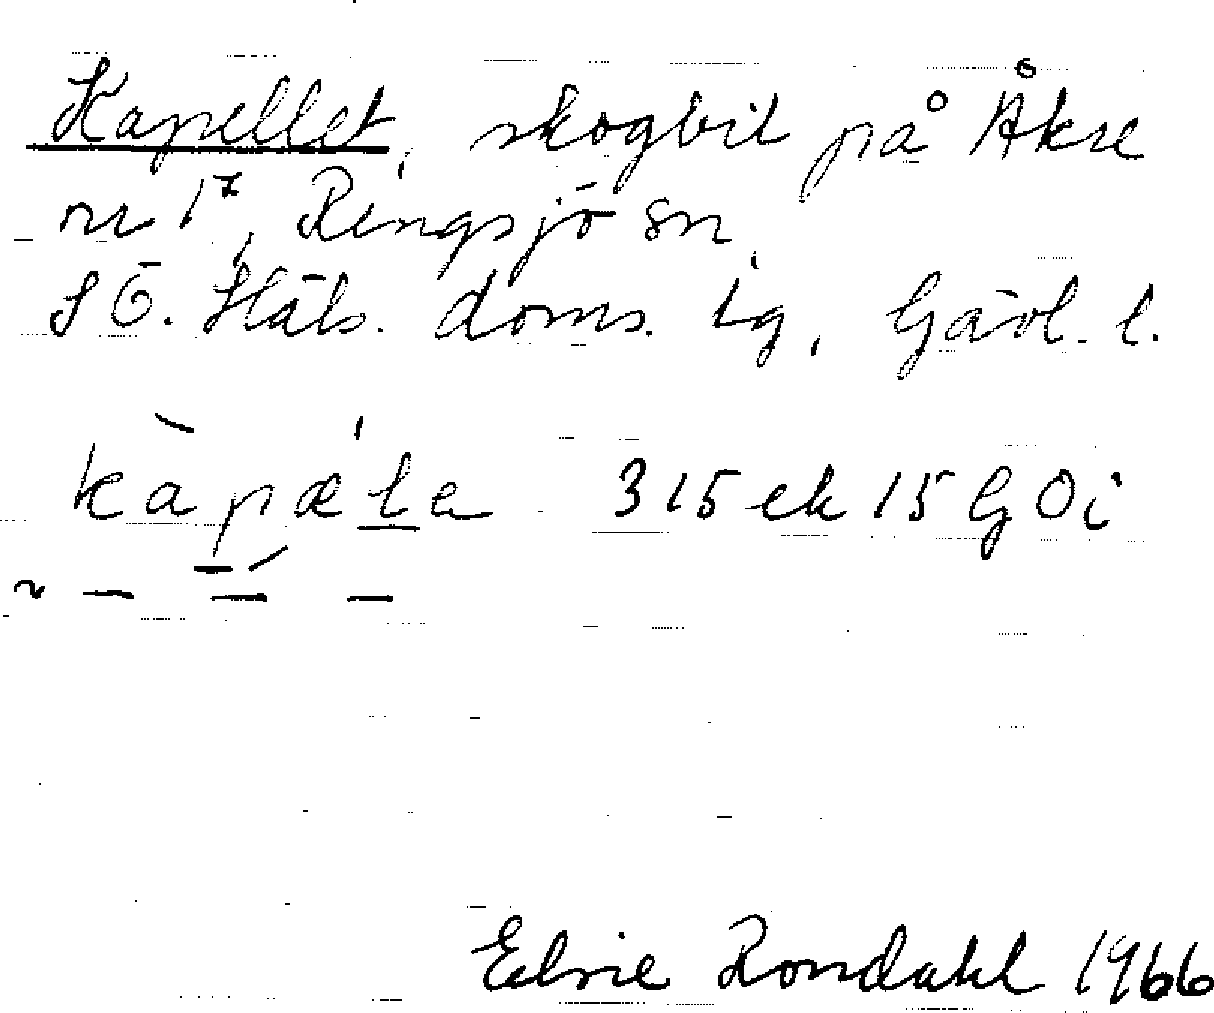 Kapellet, skogbit på Åkre
nr 1⁷, Rengsjö sn,
SÖ. Häls. doms. tg, Gävl. l.
kàpæ̀le 315 ek 15 G Oi
Elsie Rondahl 1966